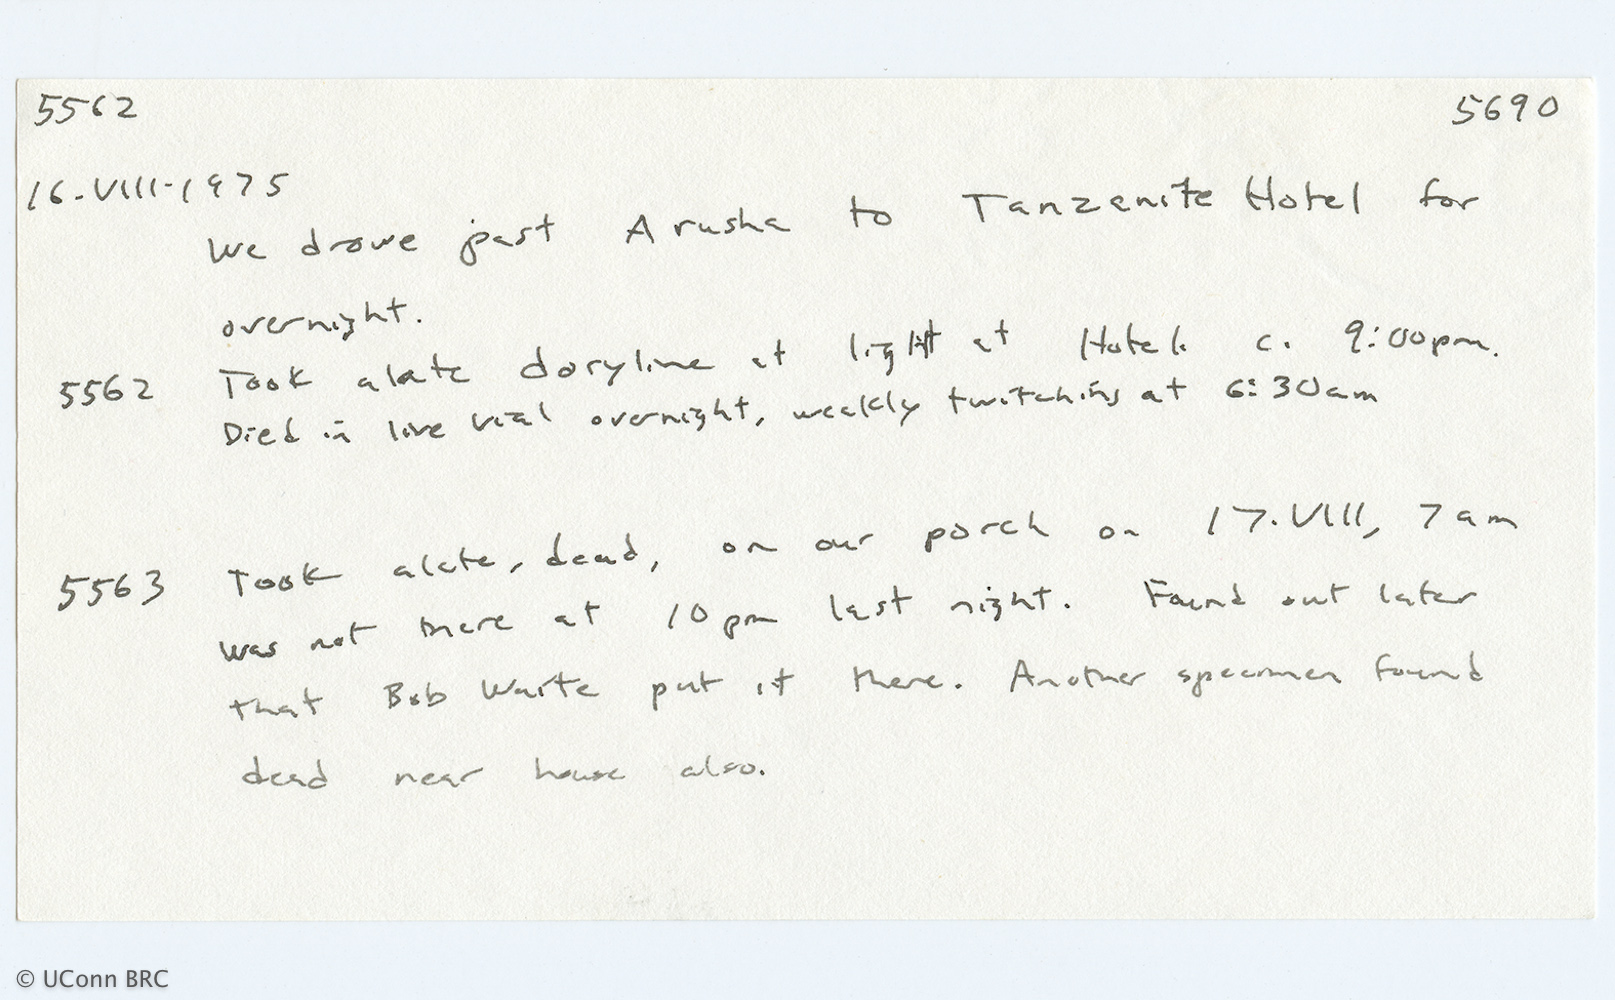 5562 5690
16-VIII-1975
We drove past Arusha to Tanzanite Hotel for
overnight.
5562 Took alate doryline at light at Hotel. c. 9:00pm.
Died in live vial overnight, weakly twitching at 6:30am
5563 Took alate, dead, on our porch on 17.VIII, 7am
was not there at 10pm last night. Found out later
that Bob Waite put it there. Another specimen found
dead near house also.
© UConn BRC